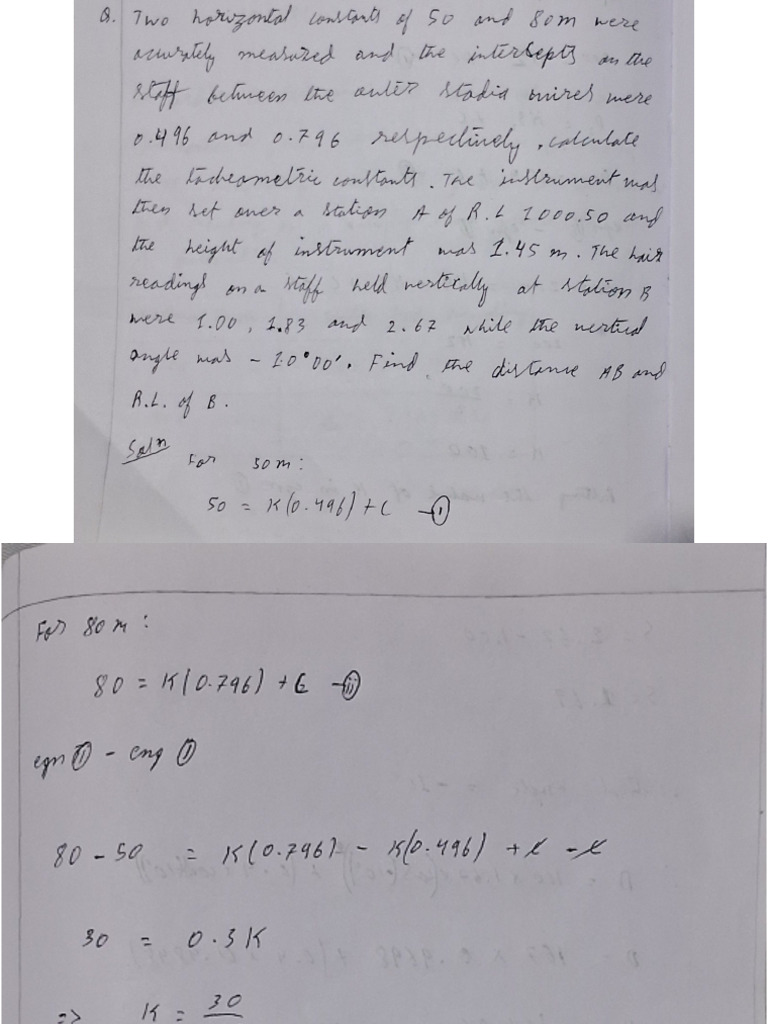 Q. Two horizontal constants of 50 and 80m were
accurately measured and the intercepts on the
staff between the outer stadia wires were
0.496 and 0.796 respectively, calculate
the tacheometric constants. The instrument was
then set over a station A of R.L 1000.50 and
the height of instrument was 1.45 m. The hair
readings on a staff held vertically at station B
were 1.00, 1.83 and 2.67 while the vertical
angle was - 10°00'. Find the distance AB and
R.L. of B.
Soln
For 50m:
50 = K(0.496) + C - (i)
For 80m:
80 = K(0.796) + C - (ii)
eqn (ii) - enq (i)
80 - 50 = K(0.796) - K(0.496) + C - C
30 = 0.3K
=> K = 30